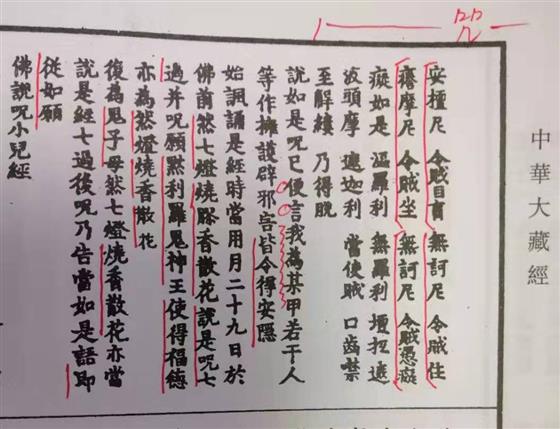 中華大藏經
安檀尼 令賊目盲 無訶尼 令賊住
𤺄摩尼 令賊坐 無訶尼 令賊愚癡
癡如是 漚羅利 無羅利 壇扭遮
波頭摩 遮迦利 當使賊 口齒禁
至解縷 乃得脫
說如是呪已便言我為某甲若干人
等作擁護辟邪害皆令得安隱
始諷誦是經時當用月二十九日於
佛前然七燈燒膠香散花說是呪七
過并呪願黙利羅鬼神王使得福德
亦為然燈燒香散花
復為鬼子母然七燈燒香散花亦當
說是經七過後呪乃告當如是語即
從如願
佛說呪小兒經